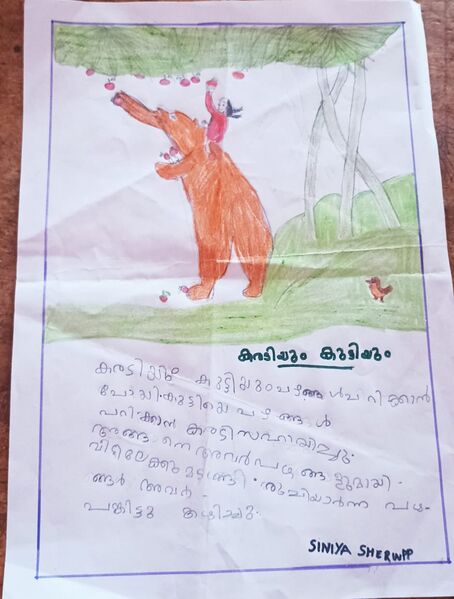 കരടിയും കുട്ടിയും
കരടിയും കുട്ടിയും പഴങ്ങൾ പറിക്കാൻ
പോയി. കുട്ടിയെ പഴങ്ങൾ
പറിക്കാൻ കരടി സഹായിച്ചു.
അങ്ങനെ അവർ പഴങ്ങളുമായി
വീട്ടിലേക്കു മടങ്ങി. രുചിയാർന്ന പഴ-
ങ്ങൾ അവർ
പങ്കിട്ടു കഴിച്ചു.
SINIYA SHERWPP